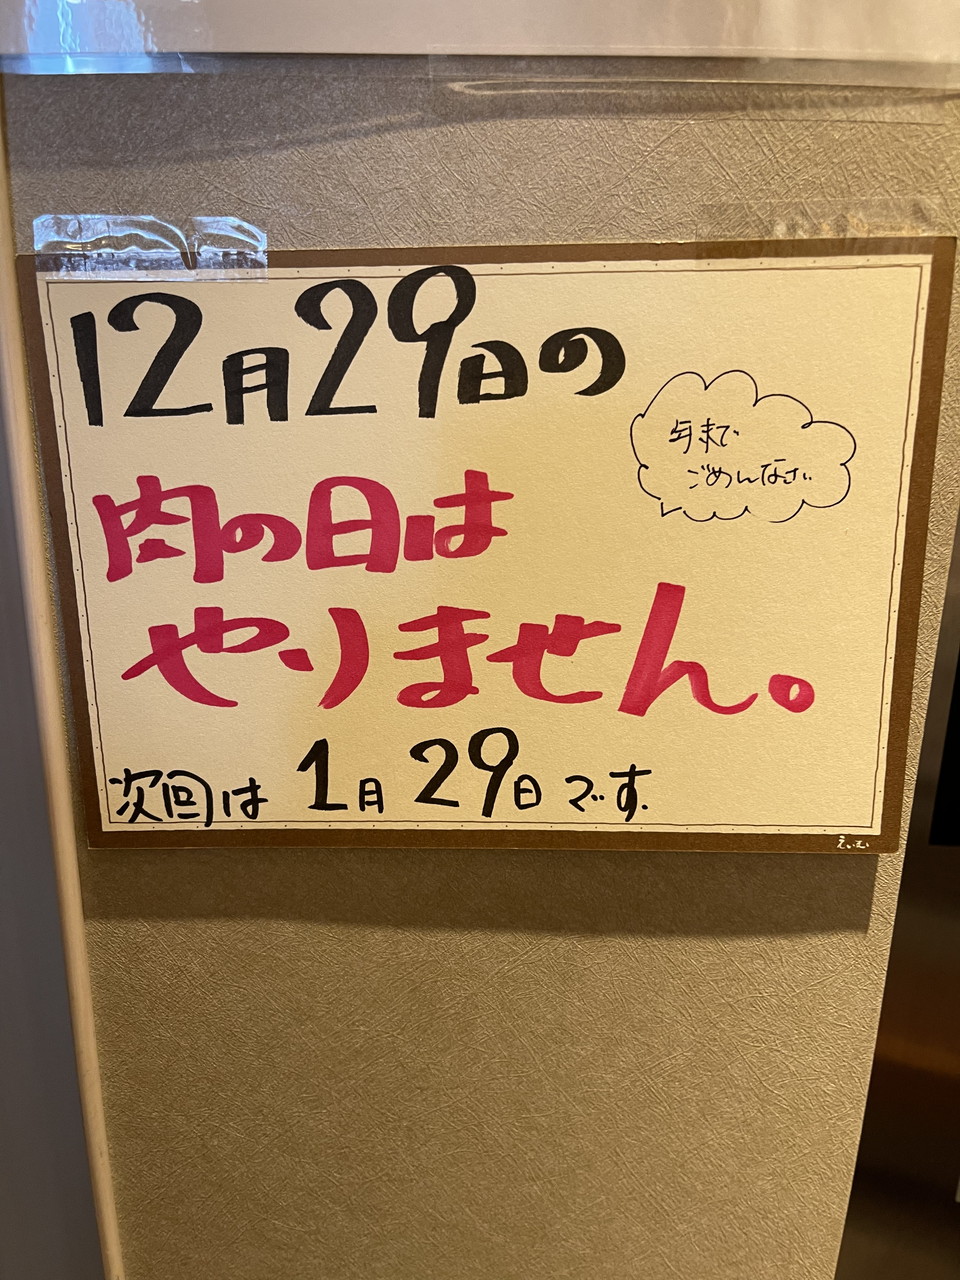 12月29日の
肉の日は
やりません。
次回は 1月29日です.
まで
ごめんなさい
えいむ